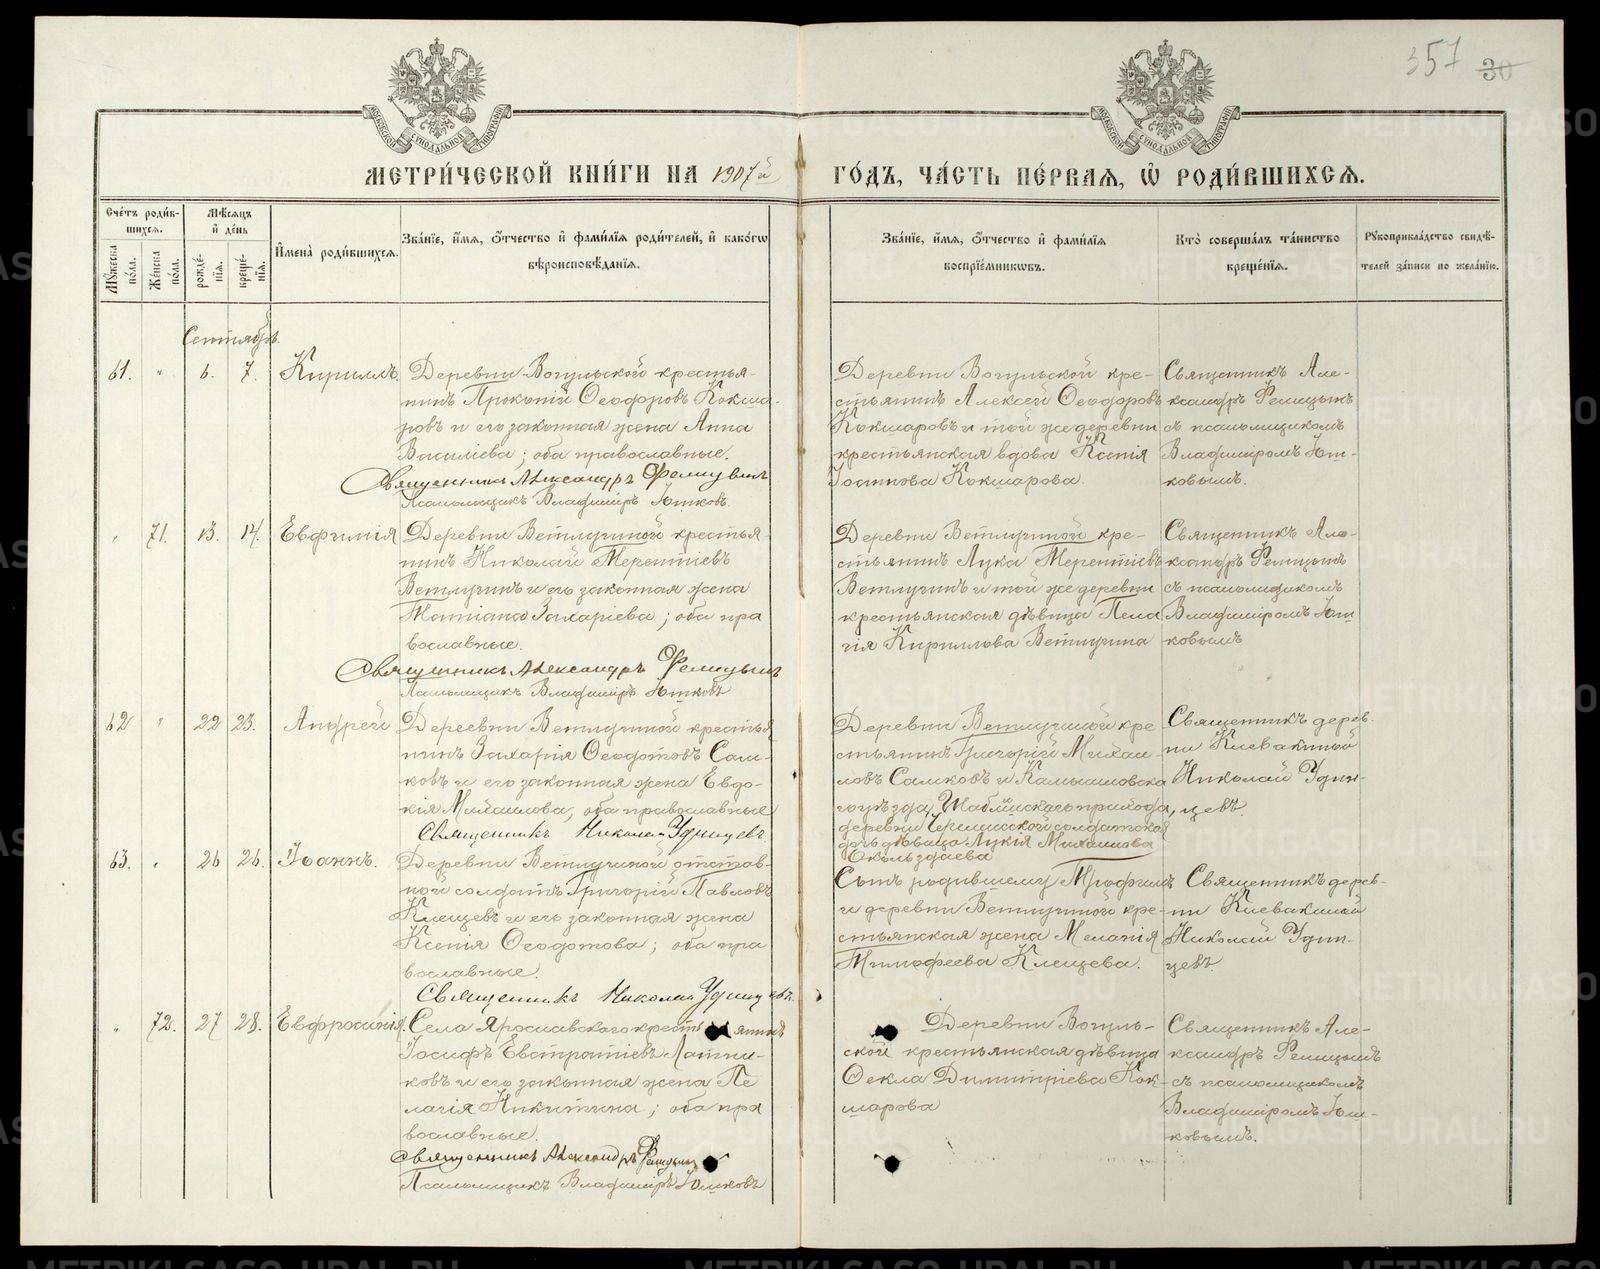 357 30
МОСКОВСКОЙ СѴНОДАЛЬНОЙ ТИПОГРАФІИ
МОСКОВСКОЙ СѴНОДАЛЬНОЙ ТИПОГРАФІИ
МЕТРИ́ЧЕСКОЙ КНИ́ГИ НА 1907й ГО́ДЪ, ЧА́СТЬ ПЕ́РВАЯ, Ѡ РОДИ́ВШИХСЯ.
Сче́тъ роди́вшихся.
Мѣ́сяцъ и де́нь
Имена̀ роди́вшихся.
Зва́нїе, и́мя, о́тчество и фами́лїя роди́телей, и како́гѡ вѣроисповѣ́данїя.
Зва́нїе, и́мя, о́тчество и фами́лїя воспрїе́мникѡвъ.
Кто̀ соверша́лъ та́инство креще́нїя.
Рукоприкла́дство свидѣ́телей за́писи по жела́нїю.
Му́жеска по́ла.
Же́нска по́ла.
рожде́нїя.
креще́нїя.
Сентябрь.
61. " 6. 7. Кириллъ.
Деревни Вогульской крестья-
нинъ Прокопій Ѳеодоровъ Кокша-
ровъ и его законная жена Анна
Василіева; оба православные.
Священникъ Александръ Фелицынъ
Псаломщикъ Владиміръ Юшковъ.
Деревни Вогульской кре-
стьянинъ Алексѣй Ѳеодоровъ
Кокшаровъ и той же деревни
крестьянская вдова Ксенія
Кокшарова.
Священникъ Але-
ксандръ Фелицынъ
съ псаломщикомъ
Владиміромъ Юш-
ковымъ.
" 71. 13. 14. Евфимія
Деревни Ветлугиной крестья-
нинъ Николай Терентіевъ
Ветлугинъ и его законная жена
Татіана Захаріева; оба пра
вославные.
Священникъ Александръ Фелицынъ
Псаломщикъ Владиміръ Юшковъ
Деревни Ветлугиной кре-
стьянинъ Лука Терентіевъ
Ветлугинъ и той же деревни
крестьянская дѣвица Пела
гія Кириллова Ветлугина
Священникъ Але-
ксандръ Фелицынъ
съ псаломщикомъ
Владиміромъ Юш
ковымъ
62 " 22 23. Андрей
Деревни Ветлугиной крестья
нинъ Захарія Ѳеодотовъ Сам-
ковъ и его законная жена Евдо-
кія Михаилова, оба православные
Священникъ Николай Удинцевъ.
Деревни Ветлугиной кре
стьянинъ Григорій Михаи-
ловъ Самковъ и Камышловска
го уѣзда, прихода,
деревни солдатская
дочь дѣвица Лукія Михаилова
Священникъ дерев-
ни Киевакиной
Николай Удин-
цевъ.
63. " 26 26. Іоаннъ.
Деревни Ветлугиной отстав-
ной солдатъ Григорій Павловъ
Клещевъ и его законная жена
Ксенія Ѳеодотова; оба пра
вославные.
Священникъ Николай Удинцевъ.
Сынъ родившему Трофимъ
и деревни Ветлугиной кре-
стьянская жена Меланія
Тимофеева Клещева.
Священникъ дерев-
ни Киевакиной
Николай Удин-
цевъ
" 72. 27 28. Евфросинія.
Села Ярославскаго крестьянинъ
Іосифъ Евстратіевъ Латни-
ковъ и его законная жена Пе
лагія Никитина; оба пра
вославные.
Священникъ Александръ Фелицынъ
Псаломщикъ Владиміръ Юшковъ
Деревни Вогуль-
ской крестьянская дѣвица
Ѳекла Димитріева Кок-
шарова
Священникъ Але-
ксандръ Фелицынъ
съ псаломщикомъ
Владиміромъ Юш-
ковымъ.
METRIKI.GASO-URAL.RU